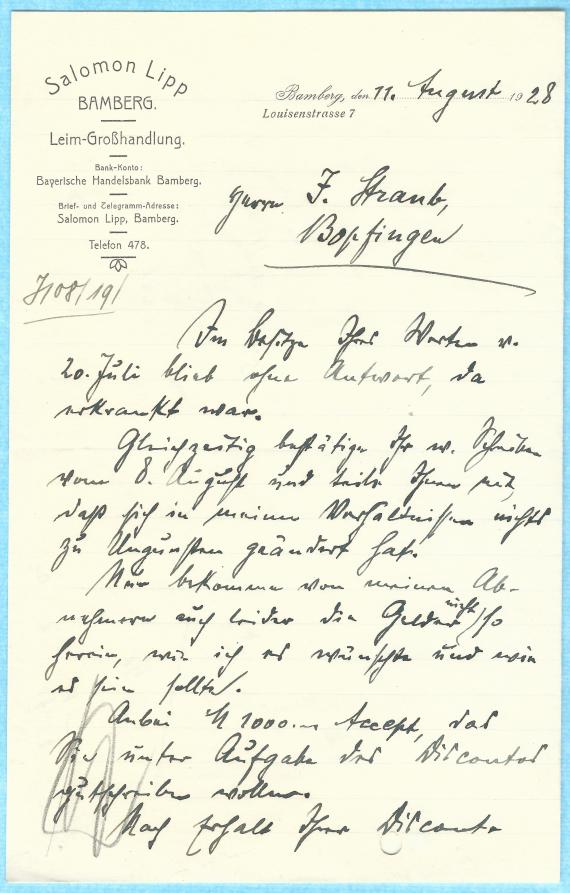 Salomon Lipp
BAMBERG.
Leim-Großhandlung.
Bank-Konto:
Bayerische Handelsbank Bamberg.
Brief- und Telegramm-Adresse:
Salomon Lipp, Bamberg.
Telefon 478.
Bamberg, den 11. August 1928
Louisenstrasse 7
Herrn J. Straub,
Bopfingen
Im Besitze Ihres Werten v.
20. Juli blieb ohne Antwort, da
erkrankt war.
Gleichzeitig bestätige Ihr w. Schreiben
vom 8. August und teile Ihnen mit,
daß sich in meinen Verhältnissen nichts
zu Ungunsten geändert hat.
Nur bekomme von meinen Ab-
nehmern auch leider die Gelder nicht so
herein, wie ich es wünschte und wie
es sein sollte.
Anbei M 1000.— Accept, das
Sie unter Aufgabe des Discontos
gutschreiben wollen.
Nach Erhalt Ihrer Disconto